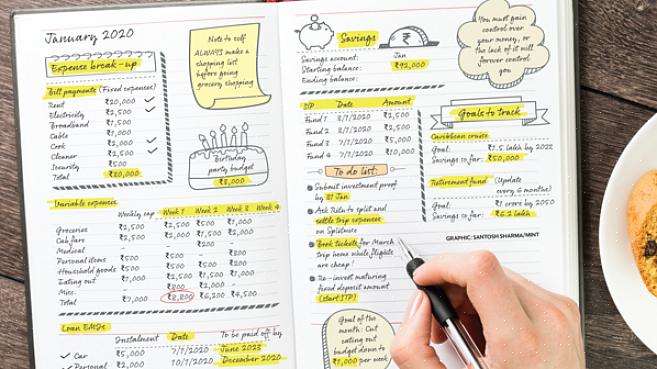 January 2020
Expense break-up
Bill payments (Fixed expenses)
Rent ₹20,000
Electricity ₹2,500
Broadband ₹1,500
Cable ₹1,000
Cook ₹2,000
Cleaner ₹2,500
Security ₹500
Total ₹30,000
Note to self
ALWAYS make a
shopping list
before going
grocery shopping
Birthday
party budget
₹8,000
Variable expenses
Weekly cap Week 1 Week 2 Week 3 Week 4
Groceries ₹2,500 ₹2,500 ₹2,500
Cab fare ₹2,000 ₹1,500 ₹2,000
Medical - - ₹200 -
Personal items ₹500 - ₹200
Household goods ₹500 ₹500
Eating out ₹1,000
Misc. ₹2,000
Total ₹7,000 ₹8,800 ₹6,200 ₹4,500
Loan EMIs
Instalment Date To be paid off by
Car ₹5,000 7/1/2020 June 2023
Personal ₹2,000 10/1/2020 December 2020
Savings
Savings account: Jan
Starting balance: ₹92,000
Ending balance:
SIP Date Amount
Fund 1 3/1/2020 ₹2,500
Fund 2 ₹2,500
Fund 3 ₹5,000
Fund 4 7/1/2020 ₹10,000
To do list:
Submit investment proof
by 31 Jan
Ask Ritu to split and
settle trip expenses
on Splitwise
Book tickets for March
trip home while flights
are cheap!
Re-invest maturing
fixed deposit amount
(start STP)
Goal of the
month: Cut
eating out
budget down to
₹1,000 per week
You must gain
control over
your money, or
the lack of it will
forever control
you
Goals to track
Caribbean cruise
Goal: ₹1.5 lakh by 2022
Savings so far: ₹50,000
Retirement fund (Update
every 6 months)
Goal: ₹1 crore by 2050
Savings so far: ₹6.2 lakh
GRAPHIC: SANTOSH SHARMA/MINT